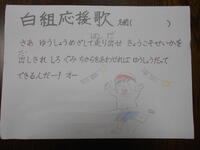 白組応援歌
さあ ゆうしょうめざして走り出せ きょうこそせいかを
出しきれ しろ ぐみ ちからをあわせれば ゆうしょうだって
できるんだー! オー